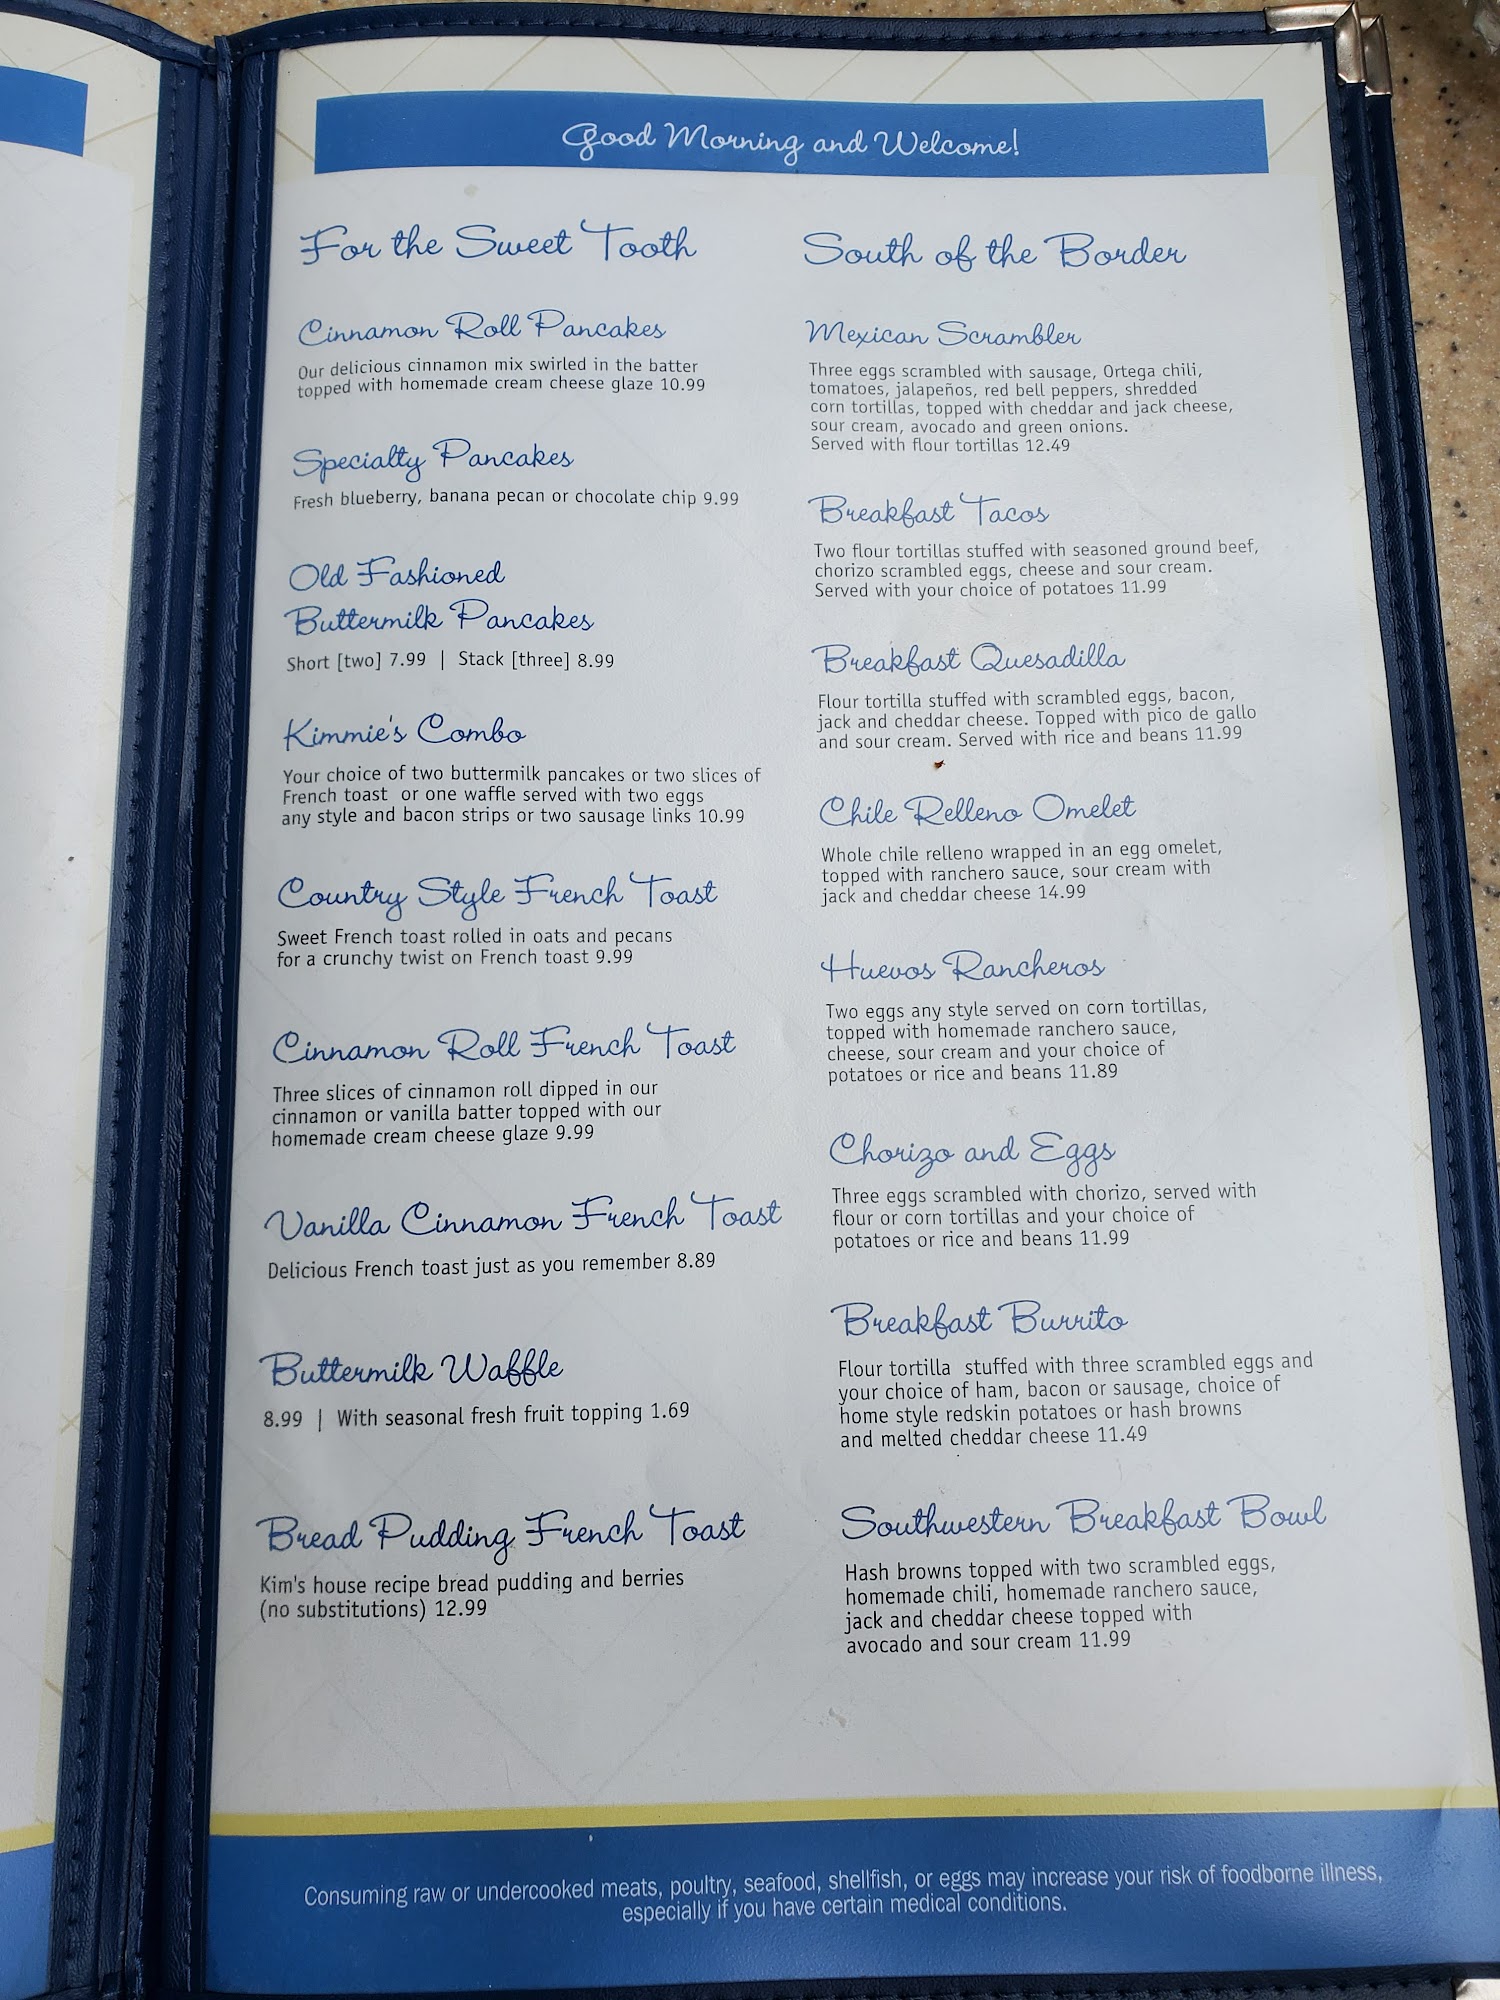 Good Morning and Welcome!
For the Sweet Tooth
Cinnamon Roll Pancakes
Our delicious cinnamon mix swirled in the batter
topped with homemade cream cheese glaze 10.99
Specialty Pancakes
Fresh blueberry, banana pecan or chocolate chip 9.99
Old Fashioned
Buttermilk Pancakes
Short [two] 7.99 | Stack [three] 8.99
Kimmie's Combo
Your choice of two buttermilk pancakes or two slices of
French toast or one waffle served with two eggs
any style and bacon strips or two sausage links 10.99
Country Style French Toast
Sweet French toast rolled in oats and pecans
for a crunchy twist on French toast 9.99
Cinnamon Roll French Toast
Three slices of cinnamon roll dipped in our
cinnamon or vanilla batter topped with our
homemade cream cheese glaze 9.99
Vanilla Cinnamon French Toast
Delicious French toast just as you remember 8.89
Buttermilk Waffle
8.99 | With seasonal fresh fruit topping 1.69
Bread Pudding French Toast
Kim's house recipe bread pudding and berries
(no substitutions) 12.99
South of the Border
Mexican Scrambler
Three eggs scrambled with sausage, Ortega chili,
tomatoes, jalapeños, red bell peppers, shredded
corn tortillas, topped with cheddar and jack cheese,
sour cream, avocado and green onions.
Served with flour tortillas 12.49
Breakfast Tacos
Two flour tortillas stuffed with seasoned ground beef,
chorizo scrambled eggs, cheese and sour cream.
Served with your choice of potatoes 11.99
Breakfast Quesadilla
Flour tortilla stuffed with scrambled eggs, bacon,
jack and cheddar cheese. Topped with pico de gallo
and sour cream. Served with rice and beans 11.99
Chile Relleno Omelet
Whole chile relleno wrapped in an egg omelet,
topped with ranchero sauce, sour cream with
jack and cheddar cheese 14.99
Huevos Rancheros
Two eggs any style served on corn tortillas,
topped with homemade ranchero sauce,
cheese, sour cream and your choice of
potatoes or rice and beans 11.89
Chorizo and Eggs
Three eggs scrambled with chorizo, served with
flour or corn tortillas and your choice of
potatoes or rice and beans 11.99
Breakfast Burrito
Flour tortilla stuffed with three scrambled eggs and
your choice of ham, bacon or sausage, choice of
home style redskin potatoes or hash browns
and melted cheddar cheese 11.49
Southwestern Breakfast Bowl
Hash browns topped with two scrambled eggs,
homemade chili, homemade ranchero sauce,
jack and cheddar cheese topped with
avocado and sour cream 11.99
Consuming raw or undercooked meats, poultry, seafood, shellfish, or eggs may increase your risk of foodborne illness,
especially if you have certain medical conditions.